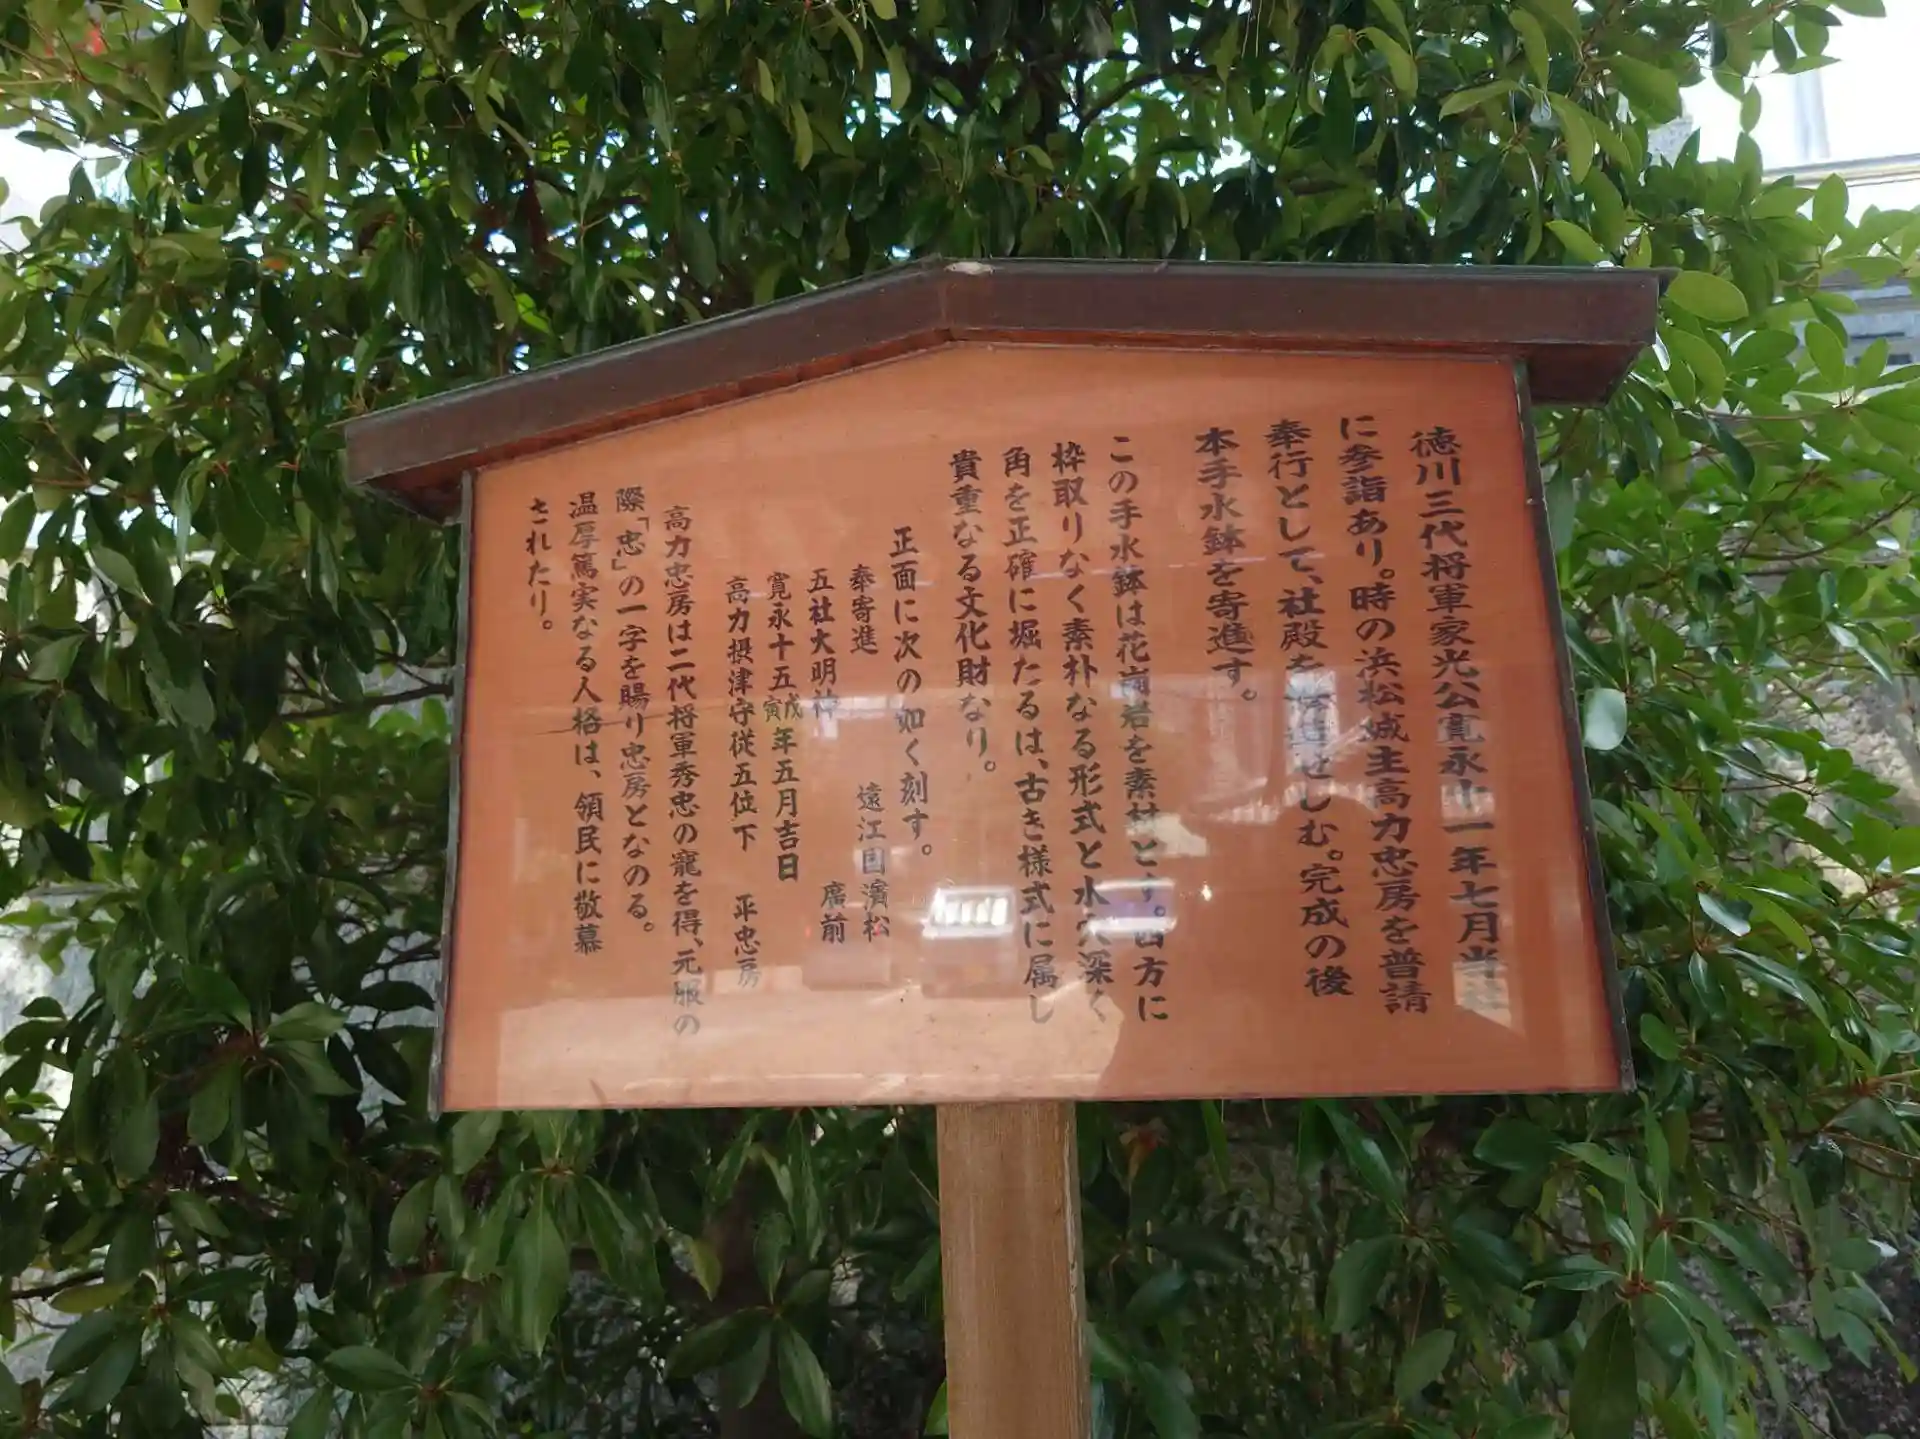 徳川三代将軍家光公寛永十一年七月当社
に参詣あり。時の浜松城主高力忠房を普請
奉行として、社殿を せしむ。完成の後
本手水鉢を寄進す。
この手水鉢は花崗岩を素材とす。四方に
枠取りなく素朴なる形式と水穴深く
角を正確に堀たるは、古き様式に属し
貴重なる文化財なり。
正面に次の如く刻す。
奉寄進 遠江国濱松
五社大明神 廣前
寛永十五戊寅年五月吉日
高力摂津守従五位下 平忠房
高力忠房は二代将軍秀忠の寵を得、元服の
際「忠」の一字を賜り忠房となのる。
温厚篤実なる人格は、領民に敬慕
されたり。